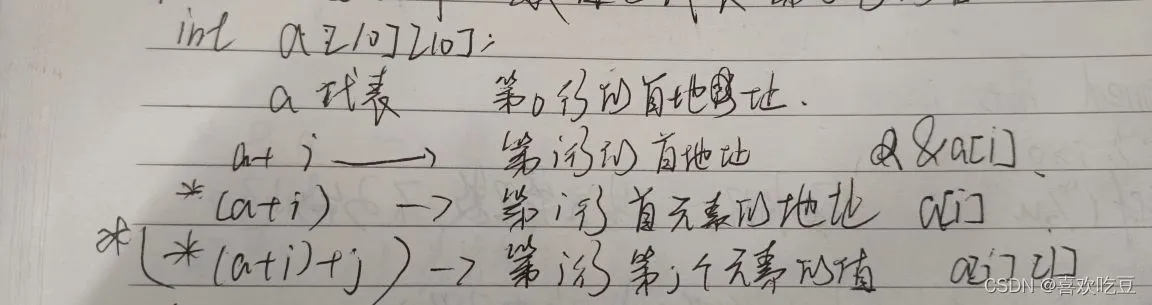 int a[10][10];
a 代表 第0行的首地址.
a+i → 第i行的首地址 &a[i]
*(a+i) → 第i行首元素的地址 a[i]
*(*(a+i)+j) → 第i行第j个元素的值 a[i][j]
CSDN @喜欢吃豆